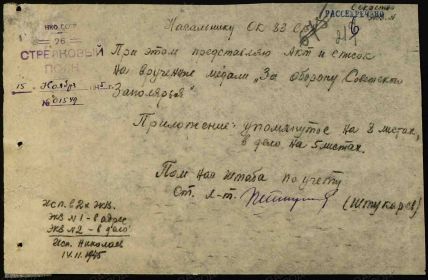 НКО СССР
26
СТРЕЛКОВЫЙ
ПОЛК
15 Ноября 1945 г.
№ 01549
Секретно
РАССЕКРЕЧЕНО
Начальнику ОК 83 СД
При этом представляю Акт и список
на вручение медали „За оборону Советского
Заполярья"
Приложение: упомянутое на 3 листах,
в дело на 5 листах.
Пом нач штаба по учету
Ст. л-т. (Штукарев)
Исп. в 2х экз.
Экз №1 – в адрес
Экз №2 – в дело
Исп. Николаев
14.11.1945